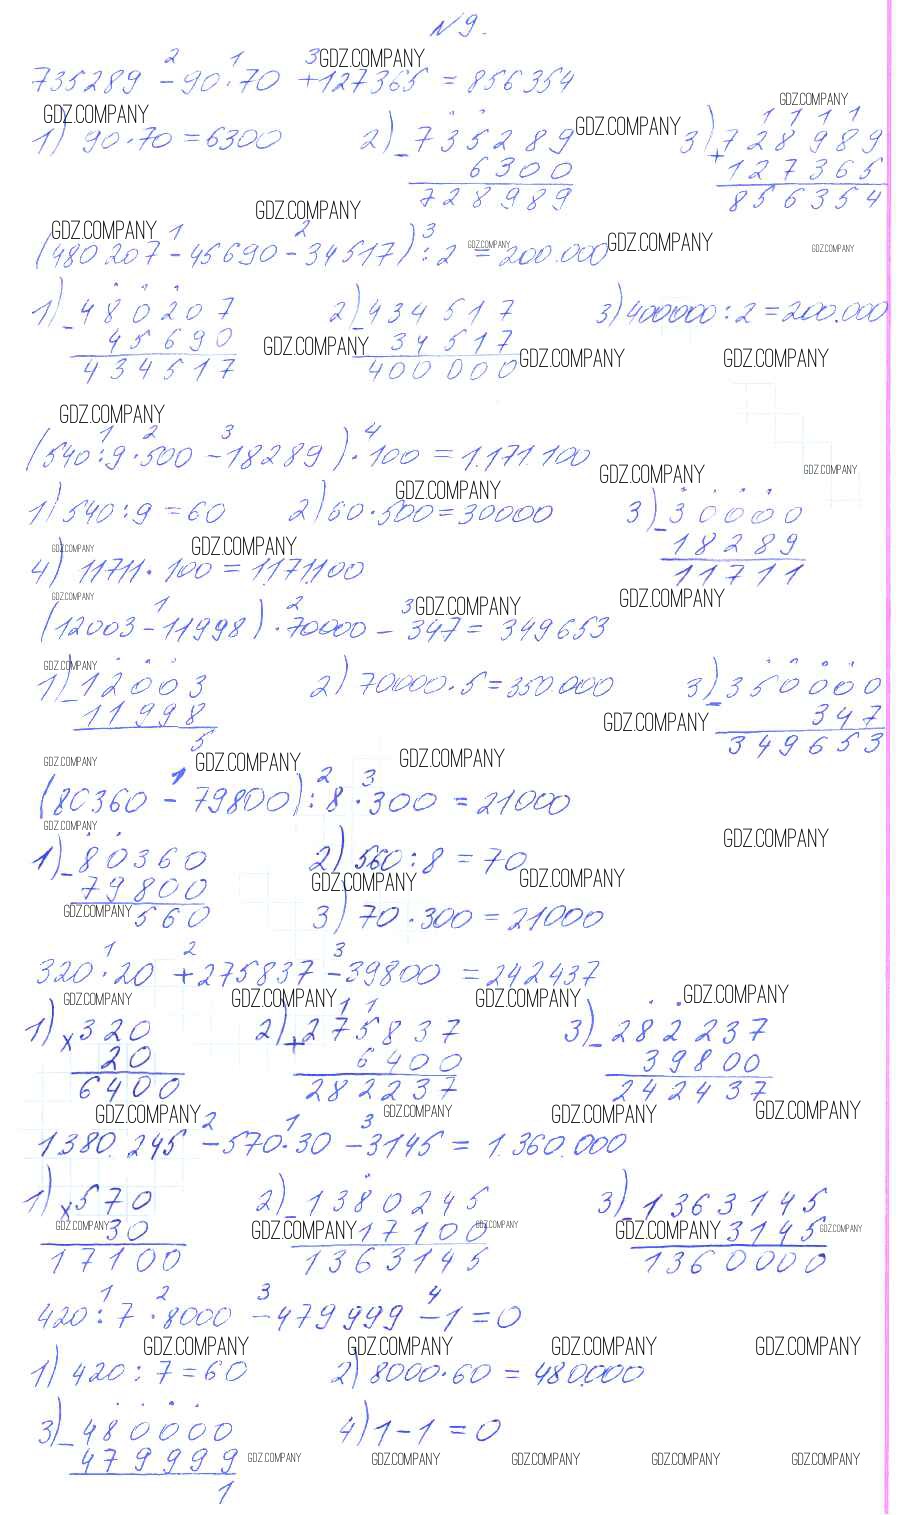 № 9.
2 1 3 GDZ.COMPANY
735289 - 90 · 70 + 127365 = 856354
GDZ.COMPANY GDZ.COMPANY GDZ.COMPANY
1) 90 · 70 = 6300 2) - 735289 3) + 728989
6300 127365
728989 856354
GDZ.COMPANY GDZ.COMPANY GDZ.COMPANY GDZ.COMPANY GDZ.COMPANY
1 2 3
(480 207 - 45690 - 34517) : 2 = 200.000
1) - 480207 2) - 434517 3) 400000 : 2 = 200.000
45690 34517
434517 400000
GDZ.COMPANY GDZ.COMPANY GDZ.COMPANY
GDZ.COMPANY
1 2 3 4
(540 : 9 · 500 - 18289) · 100 = 1.171.100
GDZ.COMPANY GDZ.COMPANY GDZ.COMPANY
1) 540 : 9 = 60 2) 60 · 500 = 30000 3) - 30000
18289
11711
GDZ.COMPANY GDZ.COMPANY
4) 11711 · 100 = 1171100
GDZ.COMPANY GDZ.COMPANY GDZ.COMPANY
1 2 3
(12003 - 11998) · 70000 - 347 = 349653
GDZ.COMPANY
1) - 12003 2) 70000 · 5 = 350.000 3) - 350000
11998 GDZ.COMPANY 347
5 349653
GDZ.COMPANY GDZ.COMPANY GDZ.COMPANY
1 2 3
(80360 - 79800) : 8 · 300 = 21000
GDZ.COMPANY GDZ.COMPANY
1) - 80360 2) 560 : 8 = 70
79800 GDZ.COMPANY GDZ.COMPANY
GDZ.COMPANY 560 3) 70 · 300 = 21000
1 2 3
320 · 20 + 275837 - 39800 = 242437
GDZ.COMPANY GDZ.COMPANY GDZ.COMPANY GDZ.COMPANY
1) x 320 2) + 275837 3) - 282237
20 6400 39800
6400 282237 242437
GDZ.COMPANY GDZ.COMPANY GDZ.COMPANY GDZ.COMPANY
2 1 3
1380.245 - 570 · 30 - 3145 = 1.360.000
1) x 570 2) - 1380245 3) - 1363145
GDZ.COMPANY 30 GDZ.COMPANY 17100 GDZ.COMPANY GDZ.COMPANY 3145 GDZ.COMPANY
17100 1363145 1360000
1 2 3 4
420 : 7 · 8000 - 479999 - 1 = 0
GDZ.COMPANY GDZ.COMPANY GDZ.COMPANY GDZ.COMPANY
1) 420 : 7 = 60 2) 8000 · 60 = 480.000
3) - 480000 4) 1 - 1 = 0
479999 GDZ.COMPANY GDZ.COMPANY GDZ.COMPANY GDZ.COMPANY GDZ.COMPANY
1